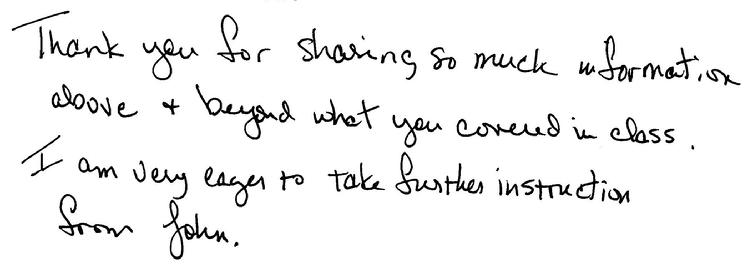 Thank you for sharing so much information
above + beyond what you covered in class.
I am very eager to take further instruction
from John.